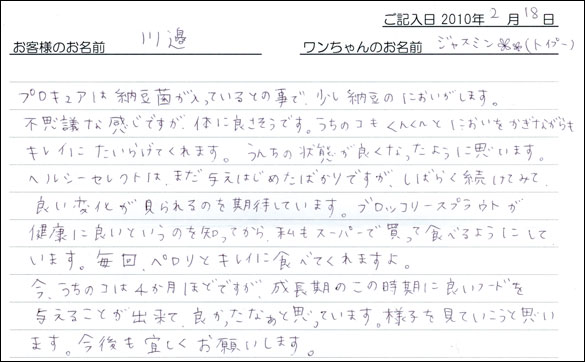 ご記入日 2010年 2 月 18 日
お客様のお名前 川邉 ワンちゃんのお名前 ジャスミン (トイプー)
プロキュアは納豆菌が入っているとの事で、少し納豆のにおいがします。
不思議な感じですが、体に良さそうです。うちのコもくんくんとにおいをかぎながらも
キレイにたいらげてくれます。うんちの状態が良くなったように思います。
ヘルシーセレクトは、まだ与えはじめたばかりですが、しばらく続けてみて、
良い変化が見られるのを期待しています。ブロッコリースプラウトが
健康に良いというのを知ってから、私もスーパーで買って食べるようにして
います。毎回、ペロリとキレイに食べてくれますよ。
今、うちのコは4か月ほどですが、成長期のこの時期に良いフードを
与えることが出来て、良かったなぁと思っています。様子を見ていこうと思い
ます。今後も宜しくお願いします。